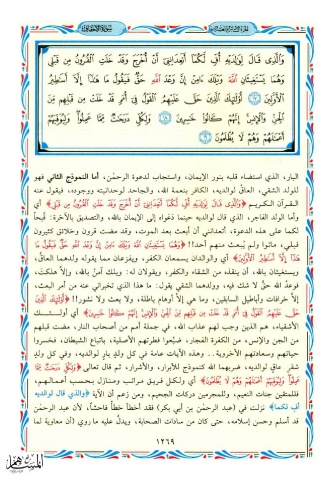 سورة الأحقاف
وَالَّذِي قَالَ لِوَالِدَيْهِ أُفٍّ لَّكُمَا أَتَعِدَانِنِي أَنْ أُخْرَجَ وَقَدْ خَلَتِ الْقُرُونُ مِن قَبْلِي
وَهُمَا يَسْتَغِيثَانِ اللَّهَ وَيْلَكَ آمِنْ إِنَّ وَعْدَ اللَّهِ حَقٌّ فَيَقُولُ مَا هَٰذَا إِلَّا أَسَاطِيرُ
الْأَوَّلِينَ ۝١٧ أُولَٰئِكَ الَّذِينَ حَقَّ عَلَيْهِمُ الْقَوْلُ فِي أُمَمٍ قَدْ خَلَتْ مِن قَبْلِهِم مِّنَ
الْجِنِّ وَالْإِنسِ إِنَّهُمْ كَانُوا خَاسِرِينَ ۝١٨ وَلِكُلٍّ دَرَجَاتٌ مِّمَّا عَمِلُوا وَلِيُوَفِّيَهُمْ
أَعْمَالَهُمْ وَهُمْ لَا يُظْلَمُونَ ۝١٩
البار، الذي استضاء قلبه بنور الإيمان، واستجاب لدعوة الرحمن، أما النموذج الثاني فهو
للولد الشقي، العاقّ لوالديه، الكافر بنعمة الله، والجاحد لوحدانيته ووجوده، فيقول عنه
القرآن الكريم ﴿وَالَّذِي قَالَ لِوَالِدَيْهِ أُفٍّ لَّكُمَا أَتَعِدَانِنِي أَنْ أُخْرَجَ وَقَدْ خَلَتِ الْقُرُونُ مِن قَبْلِي﴾
أي وأما الولد الفاجر، الذي قال لوالديه حينما دَعَواه إلى الإيمان بالله، والتصديق بالآخرة: قُبحاً
لكما على هذه الدعوة، أتعدانني أن أبعث بعد الموت، وقد مضت قرون وخلائق كثيرون
قبلي، ماتوا ولم يُبعث منهم أحد!! ﴿وَهُمَا يَسْتَغِيثَانِ اللَّهَ وَيْلَكَ آمِنْ إِنَّ وَعْدَ اللَّهِ حَقٌّ فَيَقُولُ مَا
هَٰذَا إِلَّا أَسَاطِيرُ الْأَوَّلِينَ﴾ أي والوالدان يسمعان الكفر، ويفزعان مما يقوله ولدهما العاقُّ،
ويستغيثان بالله، أن ينقذه من الشقاء والكفر، ويقولان له: ويلك آمنْ بالله، وإلاّ هلكتَ،
فوعدُ الله حقٌّ لا شك فيه، وولدهما الشقي يقول: ما هذا الذي تخبراني عنه من أمر البعث،
إلاّ خرافات وأباطيل السابقين، وما هي إلاّ أوهام باطلة، ولا بعث ولا نشور!! ﴿أُولَٰئِكَ الَّذِينَ
حَقَّ عَلَيْهِمُ الْقَوْلُ فِي أُمَمٍ قَدْ خَلَتْ مِن قَبْلِهِم مِّنَ الْجِنِّ وَالْإِنسِ إِنَّهُمْ كَانُوا خَاسِرِينَ﴾ أي أولئك
الأشقياء، هم الذين وجب لهم عذاب الله، في جملة أمم من أصحاب النار، مضت قبلهم
من الجن والإنس، من الكفرة الفجار، ضيَّعوا فطرتهم الأصلية، باتباع الشيطان، فخسروا
حياتهم وسعادتهم الأخروية.. وهذه الآيات عامة في كل ولدٍ بارٍ لوالديه، وفي كل ولدٍ
شقيٍ عاقٍ لوالديه، ضربهما الله كنموذج للأبرار، والأشرار، ثم قال تعالى ﴿وَلِكُلٍّ دَرَجَاتٌ مِّمَّا
عَمِلُوا وَلِيُوَفِّيَهُمْ أَعْمَالَهُمْ وَهُمْ لَا يُظْلَمُونَ﴾ أي ولكل فريق مراتب ومنازل بحسب أعمالهم،
فللمتقين جنات النعيم، وللمجرمين دركات الجحيم، ومن زعم أن الآية ﴿والذي قال لوالديه
أف لكما﴾ نزلت في (عبد الرحمٰن بن أبي بكر) فقد أخطأ خطأً فاحشاً، لأن عبد الرحمٰن
قد أسلم وحسن إسلامه، حتى كان من سادات الصحابة، ويدلُّ عليه ما روي (أن معاوية لما
١٢٦٩